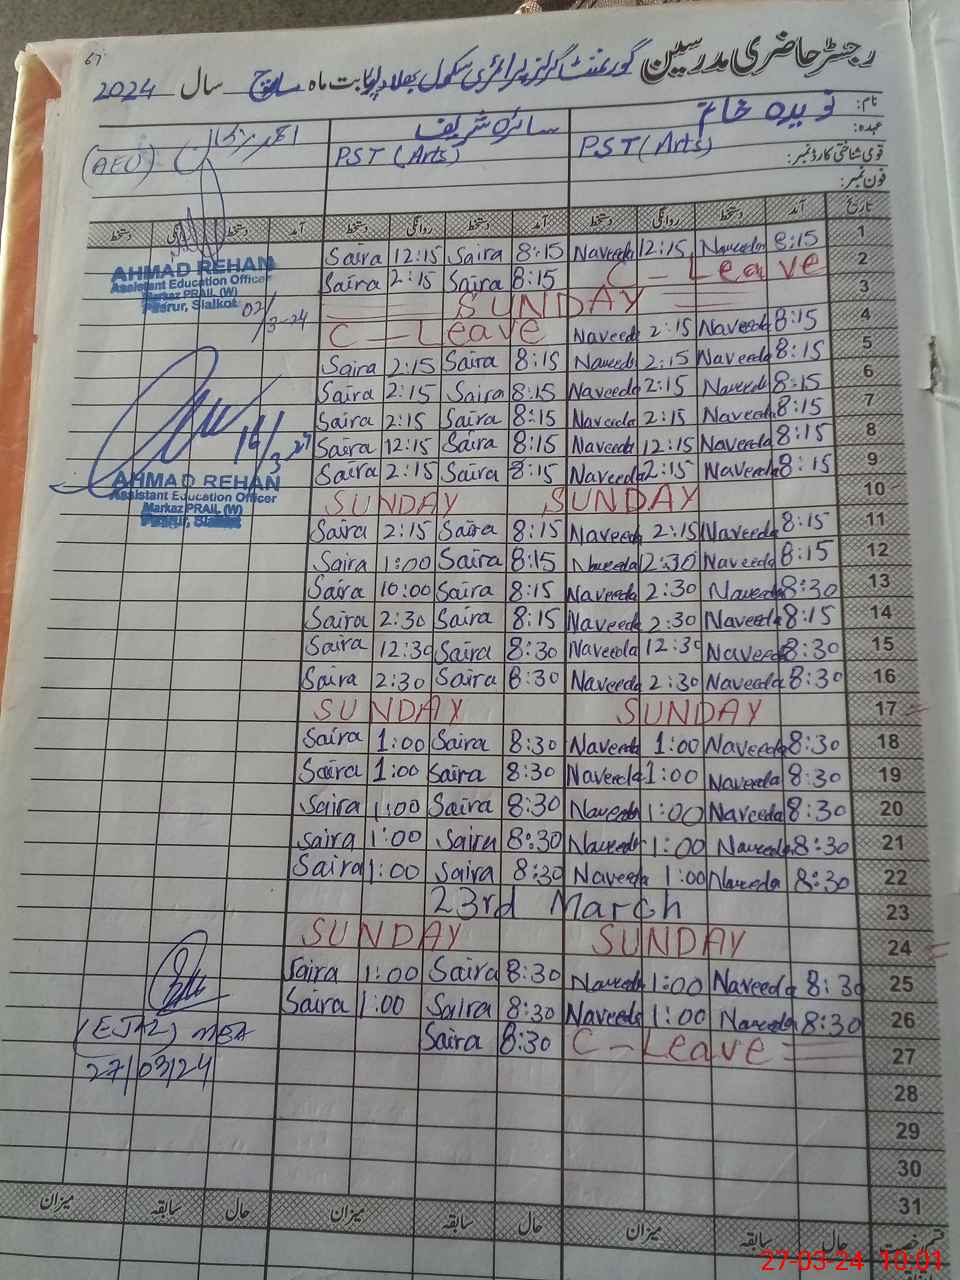 رجسٹر حاضری مدرسین گورنمنٹ گرلز پرائمری سکول بھلاد پور بابت ماہ مارچ سال 2024
نام: نویدہ خانم سائرہ شریف
عہدہ: PST (Arts) PST (Arts) (AEO)
قومی شناختی کارڈ نمبر:
فون نمبر:
تاریخ آمد دستخط روانگی دستخط آمد دستخط روانگی دستخط آمد دستخط روانگی دستخط
1 8:15 Naveeda 12:15 Naveeda 8:15 Saira 12:15 Saira
2 C - Leave 8:15 Saira 2:15 Saira
3 SUNDAY
4 8:15 Naveeda 2:15 Naveeda C - Leave
5 8:15 Naveeda 2:15 Naveeda 8:15 Saira 2:15 Saira
6 8:15 Naveeda 2:15 Naveeda 8:15 Saira 2:15 Saira
7 8:15 Naveeda 2:15 Naveeda 8:15 Saira 2:15 Saira
8 8:15 Naveeda 12:15 Naveeda 8:15 Saira 12:15 Saira
9 8:15 Naveeda 2:15 Naveeda 8:15 Saira 2:15 Saira
10 SUNDAY SUNDAY
11 8:15 Naveeda 2:15 Naveeda 8:15 Saira 2:15 Saira
12 8:15 Naveeda 12:30 Naveeda 8:15 Saira 1:00 Saira
13 8:30 Naveeda 2:30 Naveeda 8:15 Saira 10:00 Saira
14 8:15 Naveeda 2:30 Naveeda 8:15 Saira 2:30 Saira
15 8:30 Naveeda 12:30 Naveeda 8:30 Saira 12:30 Saira
16 8:30 Naveeda 2:30 Naveeda 8:30 Saira 2:30 Saira
17 SUNDAY SUNDAY
18 8:30 Naveeda 1:00 Naveeda 8:30 Saira 1:00 Saira
19 8:30 Naveeda 1:00 Naveeda 8:30 Saira 1:00 Saira
20 8:30 Naveeda 1:00 Naveeda 8:30 Saira 1:00 Saira
21 8:30 Naveeda 1:00 Naveeda 8:30 Saira 1:00 Saira
22 8:30 Naveeda 1:00 Naveeda 8:30 Saira 1:00 Saira
23 23rd March
24 SUNDAY SUNDAY
25 8:30 Naveeda 1:00 Naveeda 8:30 Saira 1:00 Saira
26 8:30 Naveeda 1:00 Naveeda 8:30 Saira 1:00 Saira
27 C - Leave 8:30 Saira
28
29
30
31
قسم رخصت حال سابقہ میزان حال سابقہ میزان حال سابقہ میزان
AHMAD REHAN
Assistant Education Officer
Markaz PRAIL (W)
Pasrur, Sialkot
02/3-24
16/3-24
AHMAD REHAN
Assistant Education Officer
Markaz PRAIL (W)
Pasrur, Sialkot
(EJAZ) MEA
27/03/24
27-03-24 10:01